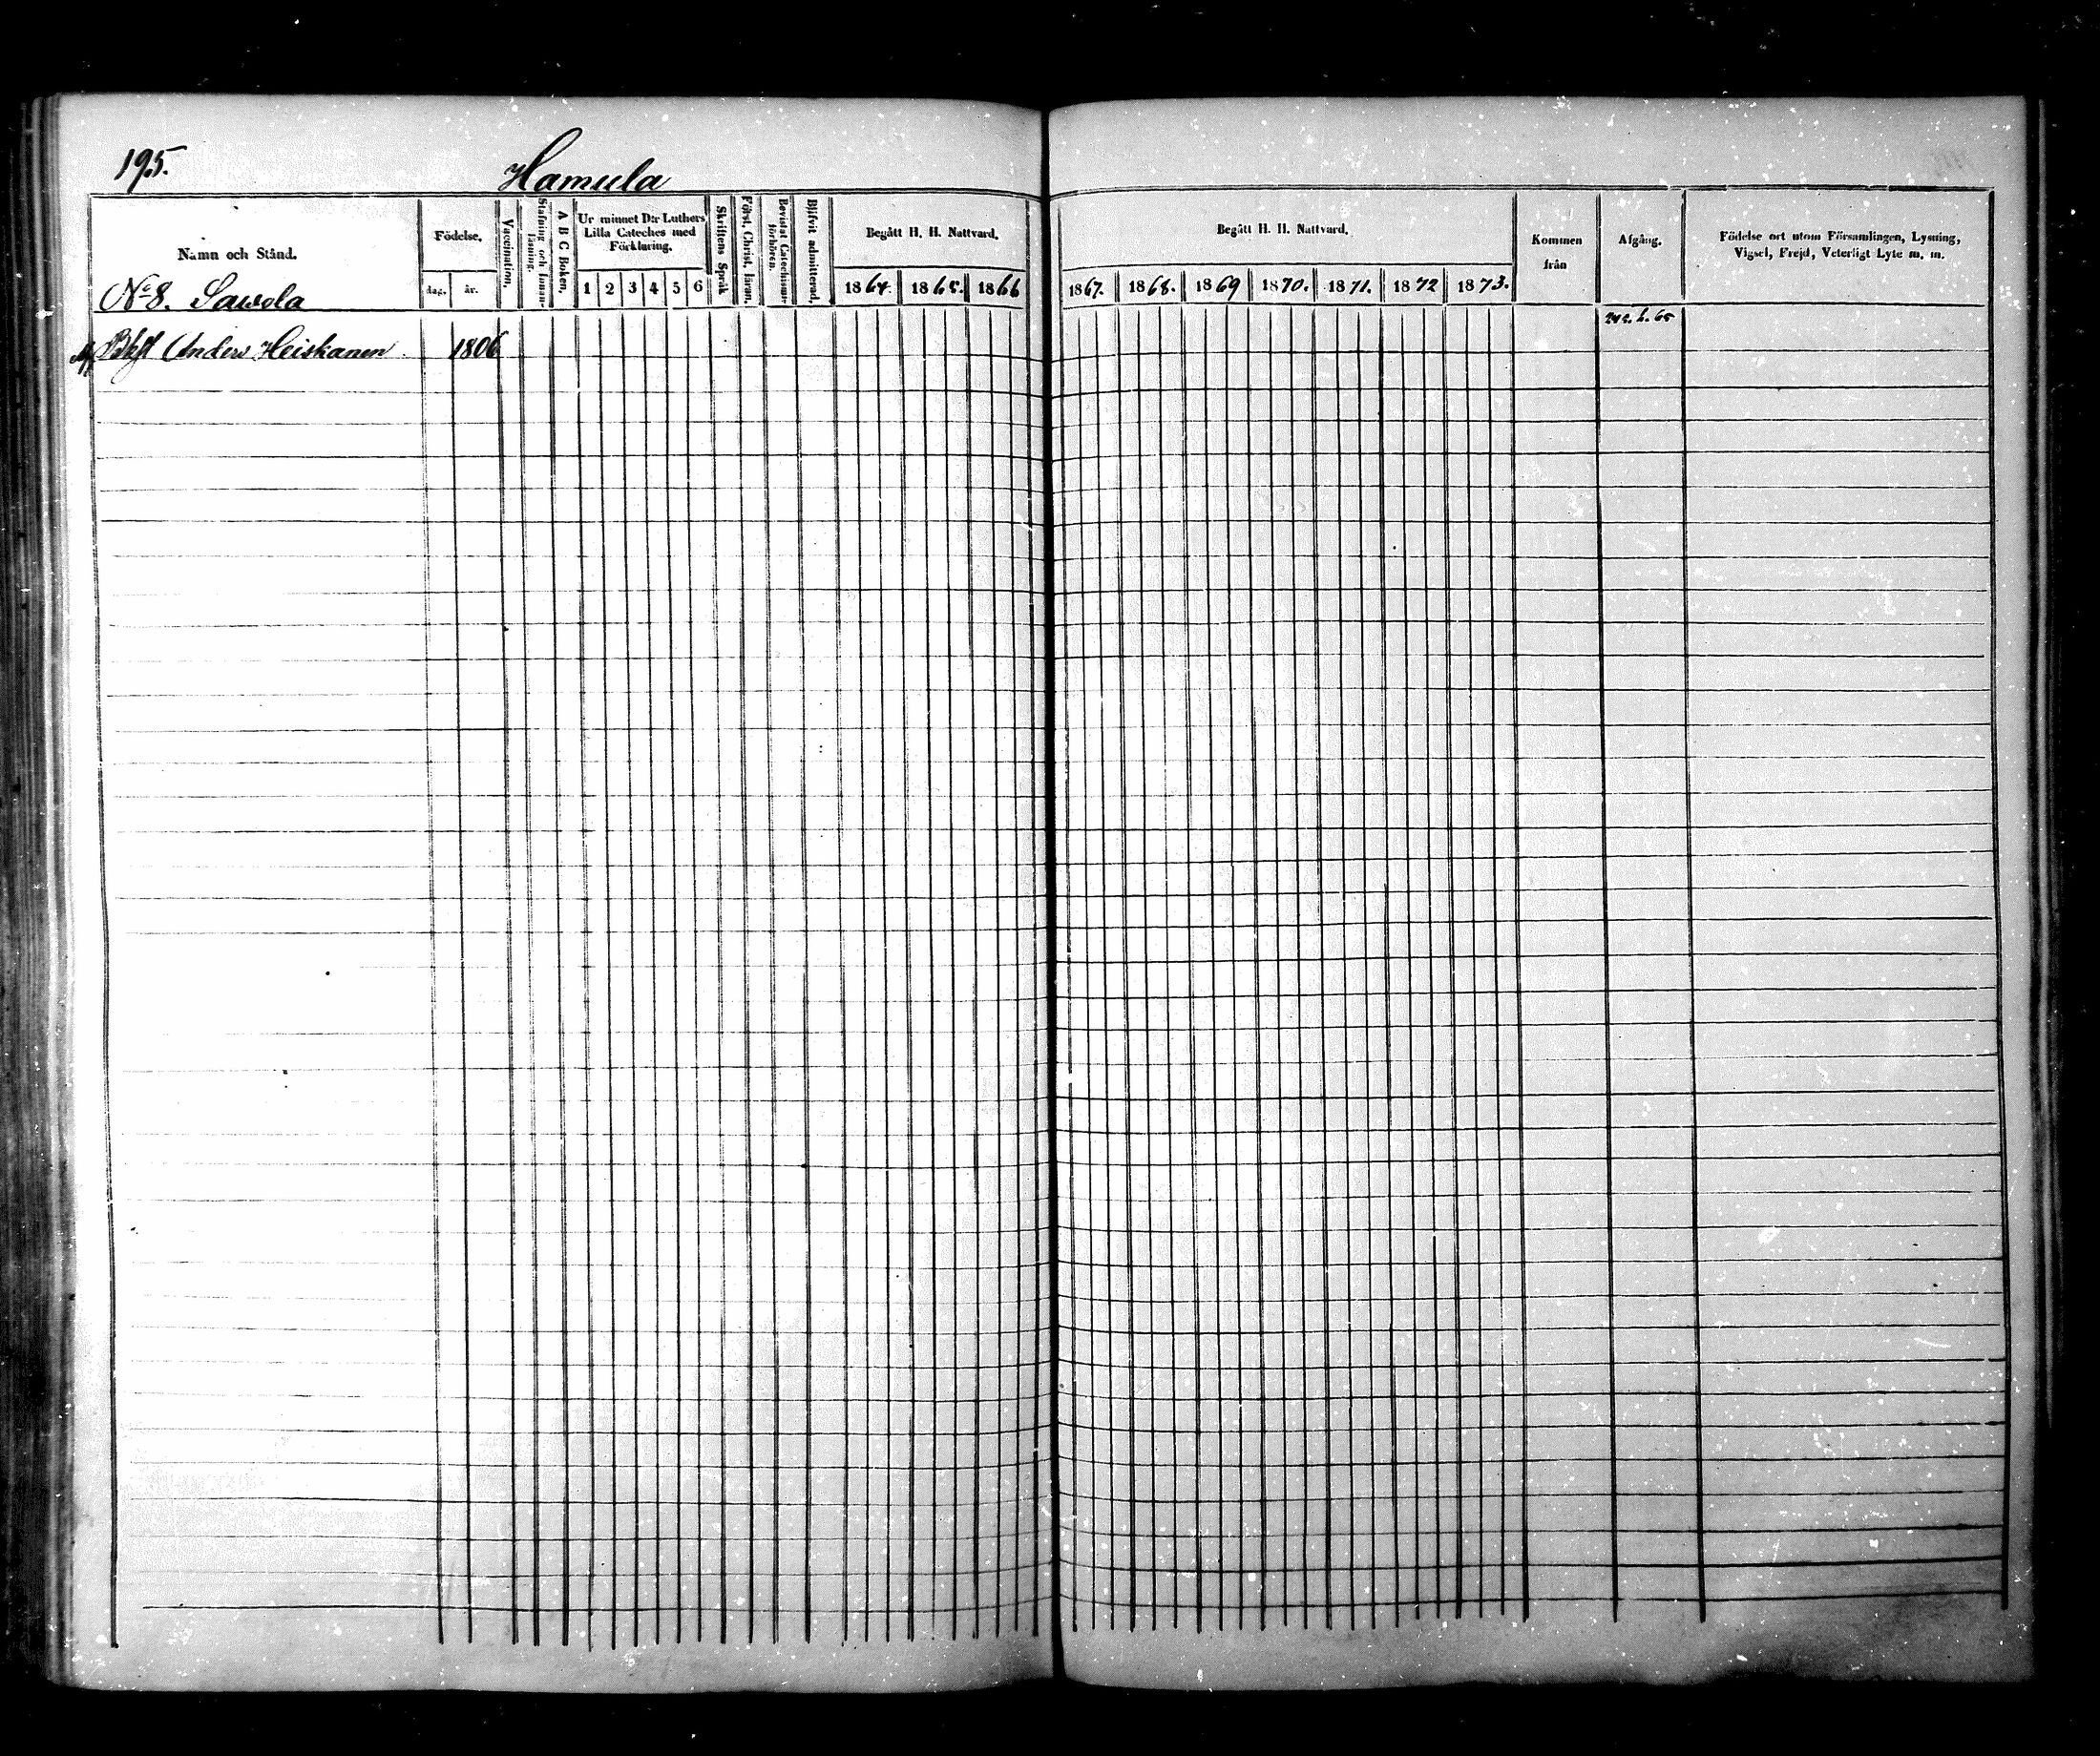 195.
Hamula
Namn och Stånd.
Födelse.
dag.
år.
Vaccination.
Stafning och Innan-
läsning.
A B C Boken.
Ur minnet D:r Luthers
Lilla Cateches med
Förklaring.
1 2 3 4 5 6
Skriftens Språk
Först. Christ. läran.
Bevistat Catechismi-
förhören.
Blifvit admitterad.
Begått H. H. Nattvard.
1864. 1865. 1866
Begått H. H. Nattvard.
1867. 1868. 1869 1870. 1871. 1872 1873.
Kommen
från
Afgång.
Födelse ort utom Församlingen, Lysning,
Vigsel, Frejd, Veterligt Lyte m. m.
No 8. Sawola
Anders Heiskanen 1806